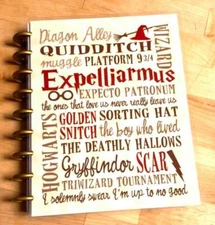 Diagon Alley
QUIDDITCH
WIZARD
muggle PLATFORM 9 3/4
Expelliarmus
EXPECTO PATRONUM
the ones that love us never really leave us
HOGWARTS
GOLDEN SORTING HAT
SNITCH the boy who lived
THE DEATHLY HALLOWS
Gryffindor SCAR
TRIWIZARD TOURNAMENT
I solemnly swear I'm up to no good